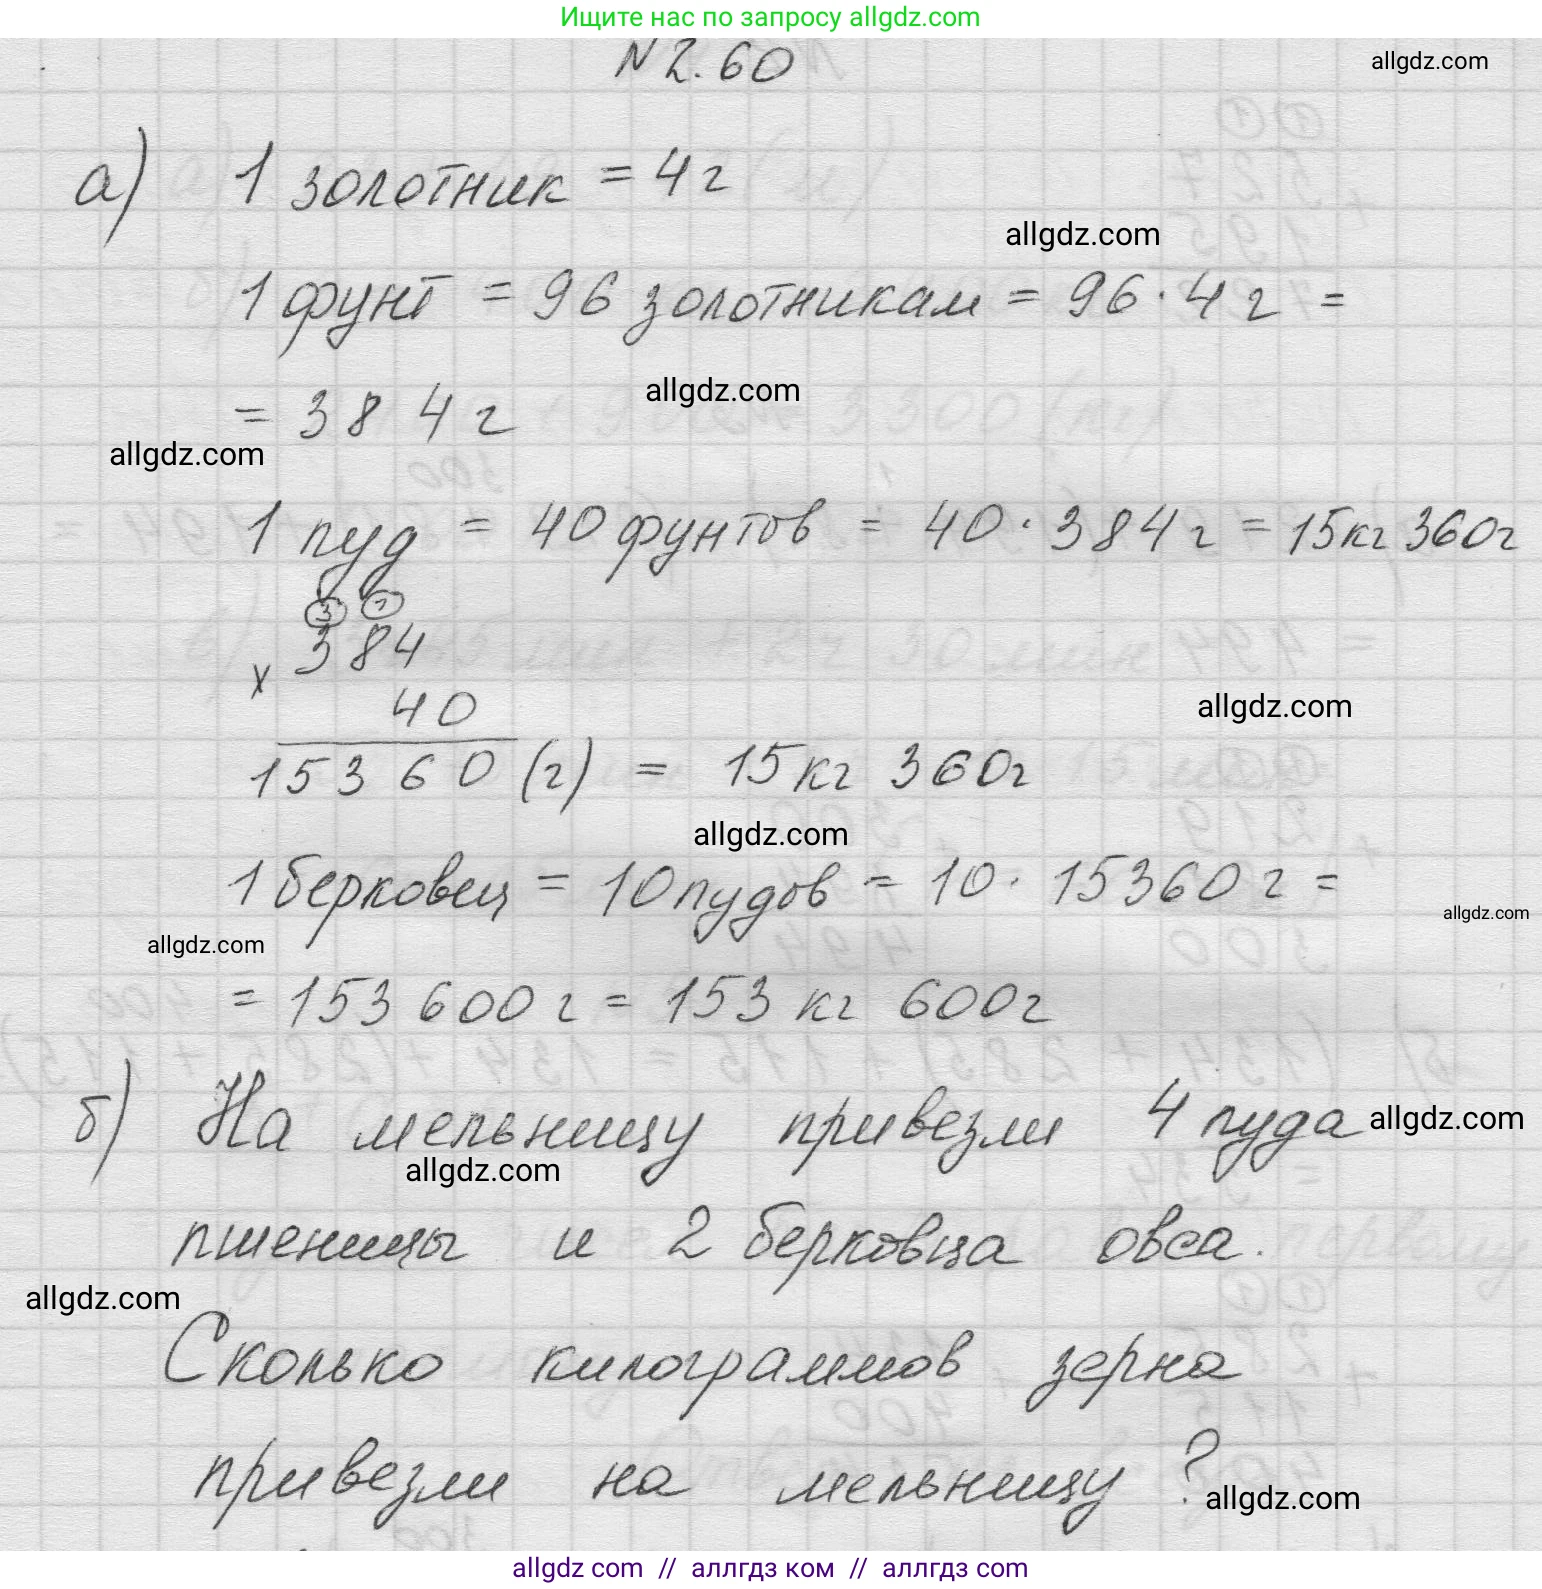 Ищите нас по запросу allgdz.com
N 2.60
allgdz.com
а) 1 золотник = 4 г
allgdz.com
1 фунт = 96 золотникам = 96 · 4 г =
allgdz.com
= 384 г
allgdz.com
1 пуд = 40 фунтов = 40 · 384 г = 15 кг 360 г
3 1
384
x
40
allgdz.com
15360 (г) = 15 кг 360 г
allgdz.com
1 берковец = 10 пудов = 10 · 15360 г =
allgdz.com
allgdz.com
= 153 600 г = 153 кг 600 г
б) На мельницу привезли 4 пуда
allgdz.com
allgdz.com
пшеницы и 2 берковца овса.
allgdz.com
Сколько килограммов зерна
привезли на мельницу?
allgdz.com
allgdz com // аллгдз ком // аллгдз com